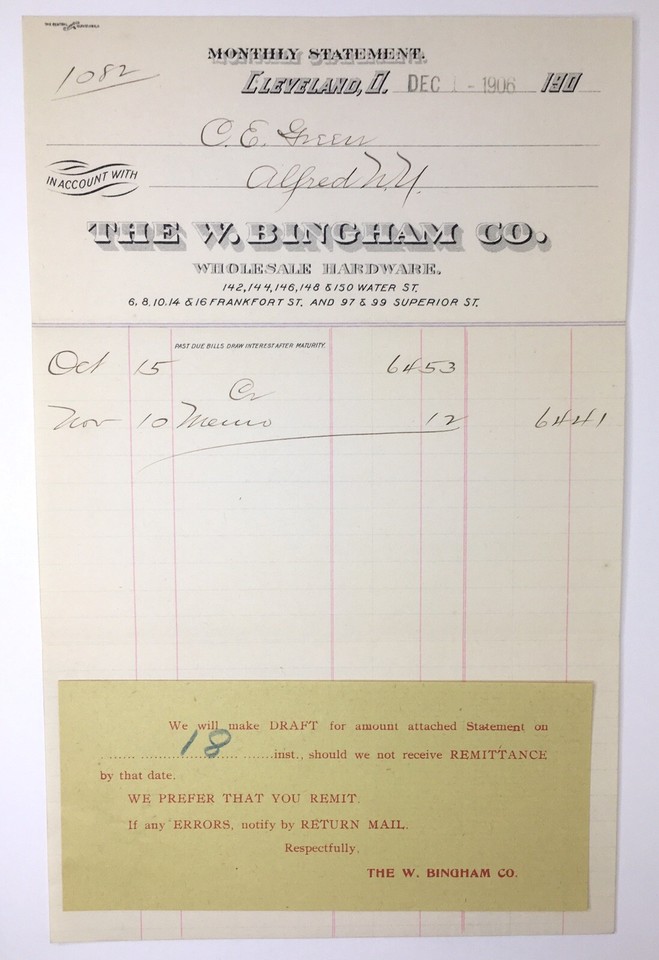 MONTHLY STATEMENT.
1082
CLEVELAND, O. DEC 1 - 1906 190
C. E. Green
IN ACCOUNT WITH
Alfred N.Y.
THE W. BINGHAM CO.
WHOLESALE HARDWARE.
142, 144, 146, 148 & 150 WATER ST.
6, 8, 10, 14 & 16 FRANKFORT ST. AND 97 & 99 SUPERIOR ST.
PAST DUE BILLS DRAW INTEREST AFTER MATURITY.
Oct 15 64 53
Cr
Nov 10 Memo 12 64 41
We will make DRAFT for amount attached Statement on
18 inst., should we not receive REMITTANCE
by that date.
WE PREFER THAT YOU REMIT.
If any ERRORS, notify by RETURN MAIL.
Respectfully,
THE W. BINGHAM CO.